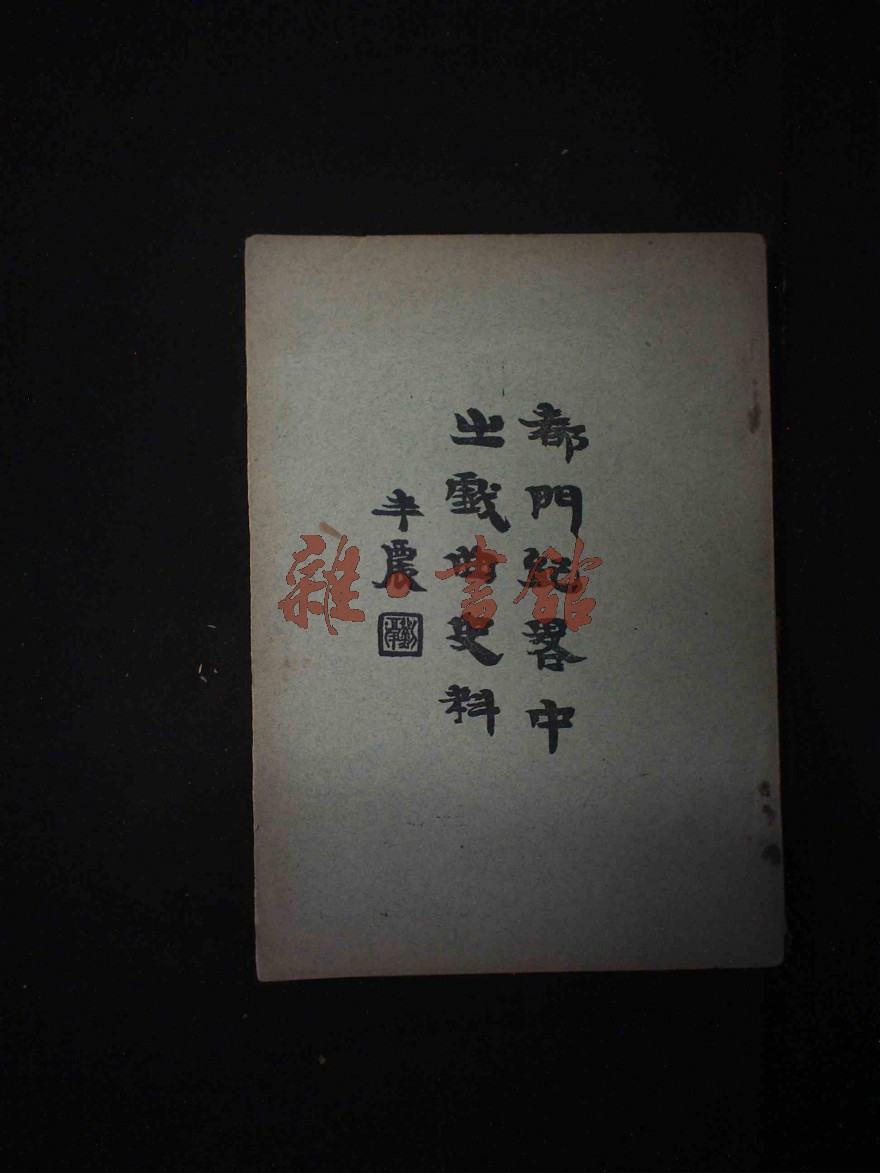 都門紀畧中
之戲曲史料
半農
雜·書館